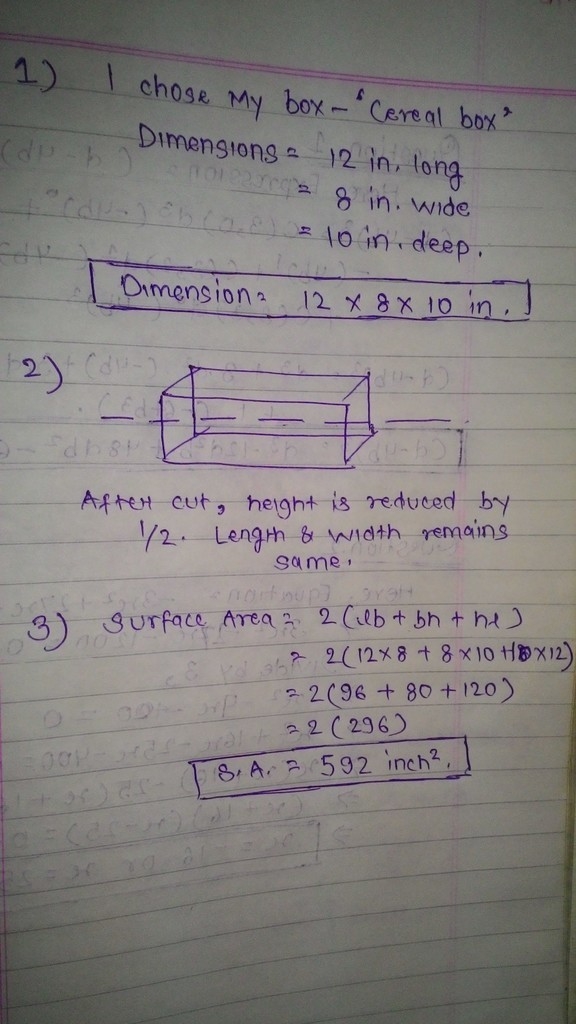 1) I chose my box - "Cereal box"
Dimensions = 12 in. long
= 8 in. wide
= 10 in. deep.
Dimension = 12 x 8 x 10 in.
2)
After cut, height is reduced by
1/2. Length & width remains
same.
3) Surface Area = 2(lb + bh + hl)
= 2(12x8 + 8x10 + 10x12)
= 2(96 + 80 + 120)
= 2(296)
S.A. = 592 inch².